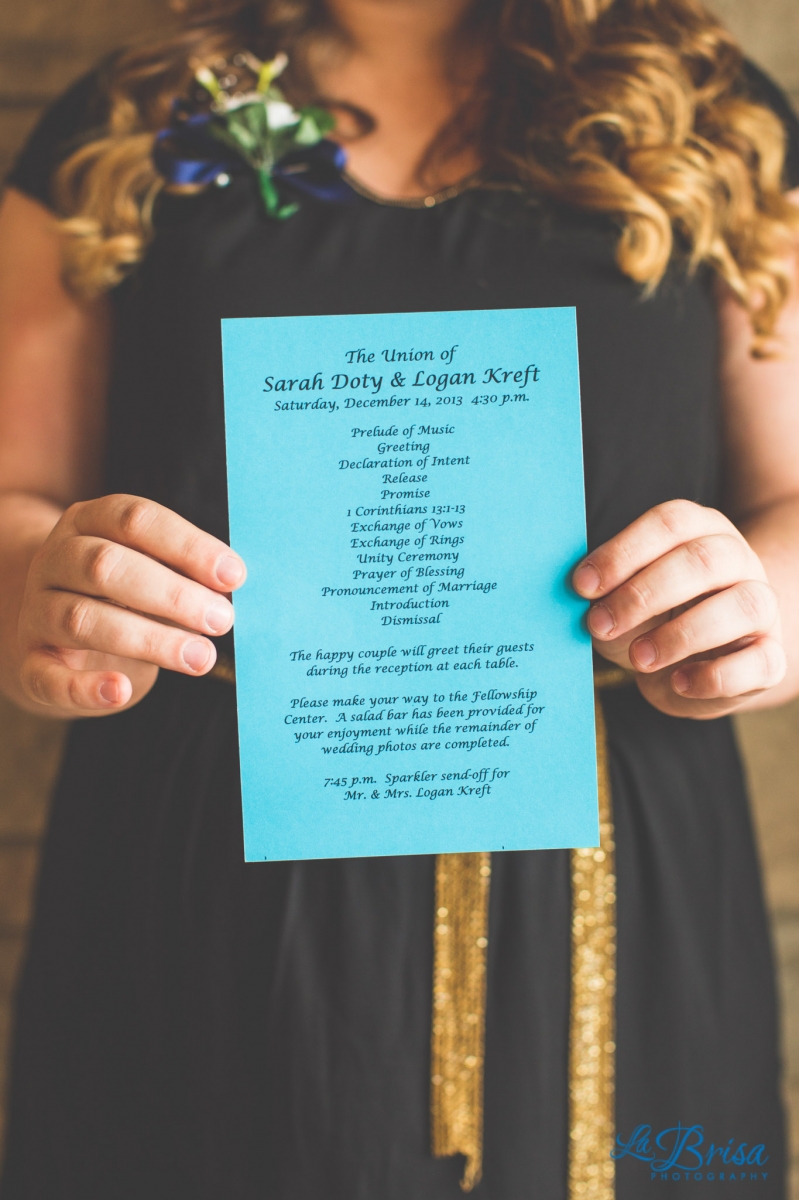 The Union of
Sarah Doty & Logan Kreft
Saturday, December 14, 2013 4:30 p.m.
Prelude of Music
Greeting
Declaration of Intent
Release
Promise
1 Corinthians 13:1-13
Exchange of Vows
Exchange of Rings
Unity Ceremony
Prayer of Blessing
Pronouncement of Marriage
Introduction
Dismissal
The happy couple will greet their guests
during the reception at each table.
Please make your way to the Fellowship
Center. A salad bar has been provided for
your enjoyment while the remainder of
wedding photos are completed.
7:45 p.m. Sparkler send-off for
Mr. & Mrs. Logan Kreft
La Brisa
PHOTOGRAPHY